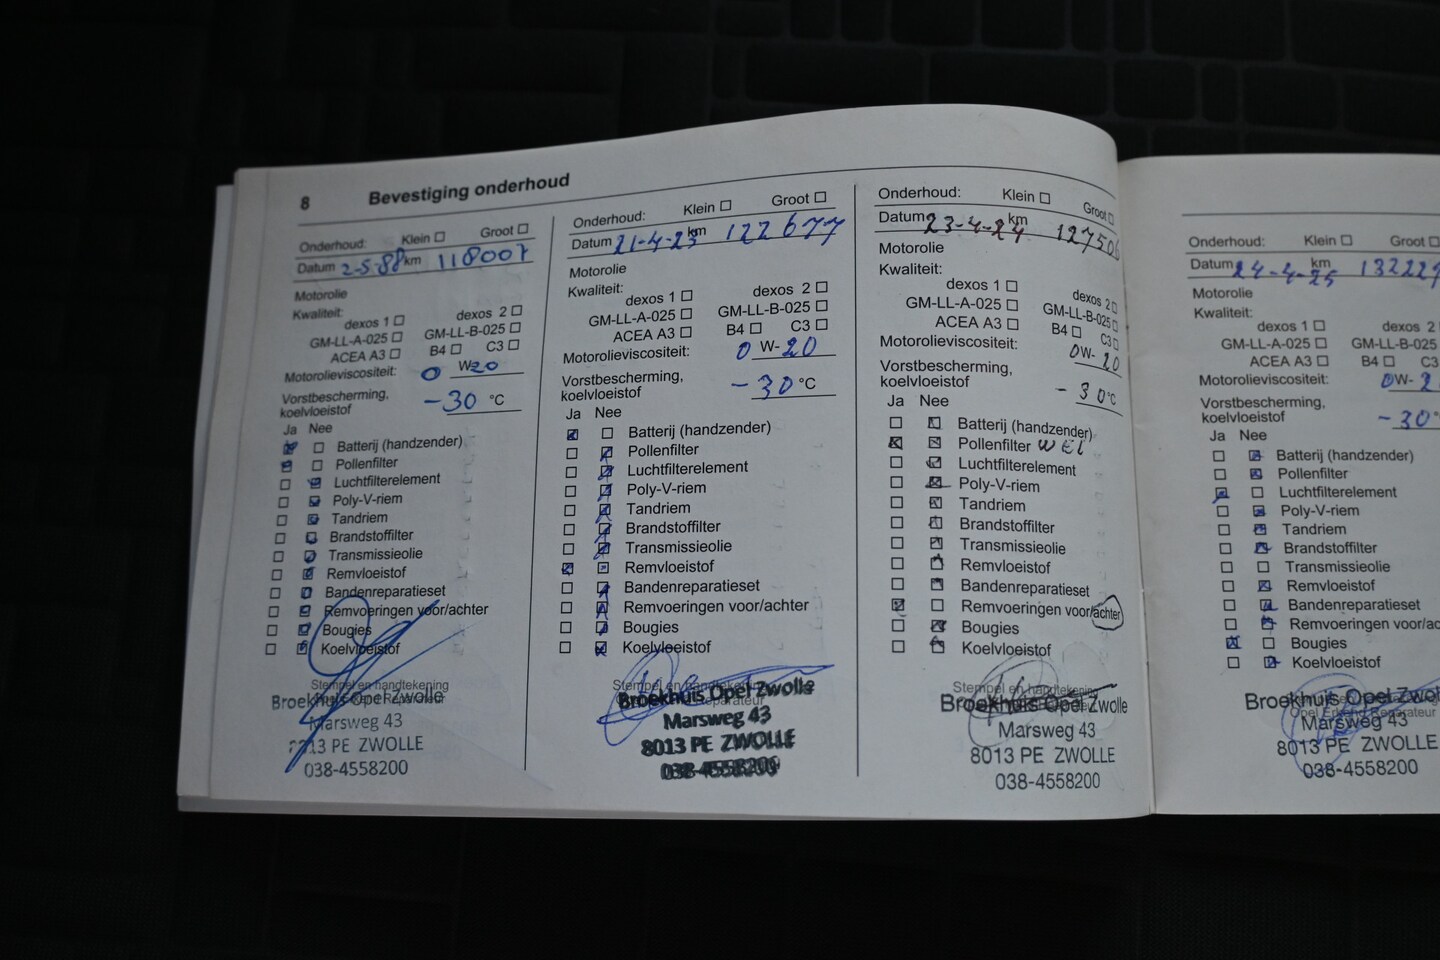 8 Bevestiging onderhoud
Onderhoud: Klein ☐ Groot ☐
Datum 2-5-88 km 118007
Motorolie
Kwaliteit:
dexos 1 ☐ dexos 2 ☐
GM-LL-A-025 ☐ GM-LL-B-025 ☐
ACEA A3 ☐ B4 ☐ C3 ☐
Motorolieviscositeit: 0 W20
Vorstbescherming,
koelvloeistof -30 °C
Ja Nee
☒ ☐ Batterij (handzender)
☒ ☐ Pollenfilter
☐ ☒ Luchtfilterelement
☐ ☒ Poly-V-riem
☐ ☒ Tandriem
☐ ☒ Brandstoffilter
☐ ☒ Transmissieolie
☐ ☒ Remvloeistof
☐ ☒ Bandenreparatieset
☐ ☒ Remvoeringen voor/achter
☐ ☒ Bougies
☐ ☒ Koelvloeistof
Stempel en handtekening
Broekhuis Opel Zwolle
Marsweg 43
8013 PE ZWOLLE
038-4558200
Onderhoud: Klein ☐ Groot ☐
Datum 21-4-23 km 122677
Motorolie
Kwaliteit:
dexos 1 ☐ dexos 2 ☐
GM-LL-A-025 ☐ GM-LL-B-025 ☐
ACEA A3 ☐ B4 ☐ C3 ☐
Motorolieviscositeit: 0 W-20
Vorstbescherming,
koelvloeistof -30 °C
Ja Nee
☒ ☐ Batterij (handzender)
☐ ☒ Pollenfilter
☐ ☒ Luchtfilterelement
☐ ☒ Poly-V-riem
☐ ☒ Tandriem
☐ ☒ Brandstoffilter
☐ ☒ Transmissieolie
☒ ☐ Remvloeistof
☐ ☒ Bandenreparatieset
☐ ☒ Remvoeringen voor/achter
☐ ☒ Bougies
☐ ☒ Koelvloeistof
Stempel en handtekening
Broekhuis Opel Zwolle
Marsweg 43
8013 PE ZWOLLE
038-4558200
Onderhoud: Klein ☐ Groot ☐
Datum 23-4-24 km 127506
Motorolie
Kwaliteit:
dexos 1 ☐ dexos 2 ☐
GM-LL-A-025 ☐ GM-LL-B-025 ☐
ACEA A3 ☐ B4 ☐ C3 ☐
Motorolieviscositeit: 0W-20
Vorstbescherming,
koelvloeistof -30°C
Ja Nee
☐ ☒ Batterij (handzender)
☒ ☒ Pollenfilter WEL
☐ ☒ Luchtfilterelement
☐ ☒ Poly-V-riem
☐ ☒ Tandriem
☐ ☒ Brandstoffilter
☐ ☒ Transmissieolie
☐ ☒ Remvloeistof
☐ ☒ Bandenreparatieset
☒ ☐ Remvoeringen voor/achter
☐ ☒ Bougies
☐ ☒ Koelvloeistof
Stempel en handtekening
Broekhuis Opel Zwolle
Marsweg 43
8013 PE ZWOLLE
038-4558200
Onderhoud: Klein ☐ Groot ☐
Datum 24-4-25 km 132229
Motorolie
Kwaliteit:
dexos 1 ☐ dexos 2
GM-LL-A-025 ☐ GM-LL-B-025
ACEA A3 ☐ B4 ☐ C3
Motorolieviscositeit: 0W-2
Vorstbescherming,
koelvloeistof -30°
Ja Nee
☐ ☒ Batterij (handzender)
☐ ☒ Pollenfilter
☒ ☐ Luchtfilterelement
☐ ☒ Poly-V-riem
☐ ☒ Tandriem
☐ ☒ Brandstoffilter
☐ ☐ Transmissieolie
☐ ☒ Remvloeistof
☐ ☒ Bandenreparatieset
☐ ☒ Remvoeringen voor/ac
☒ ☐ Bougies
☐ ☒ Koelvloeistof
Broekhuis Opel Zwol
Opel Erkend Reparateur
Marsweg 43
8013 PE ZWOLLE
038-4558200